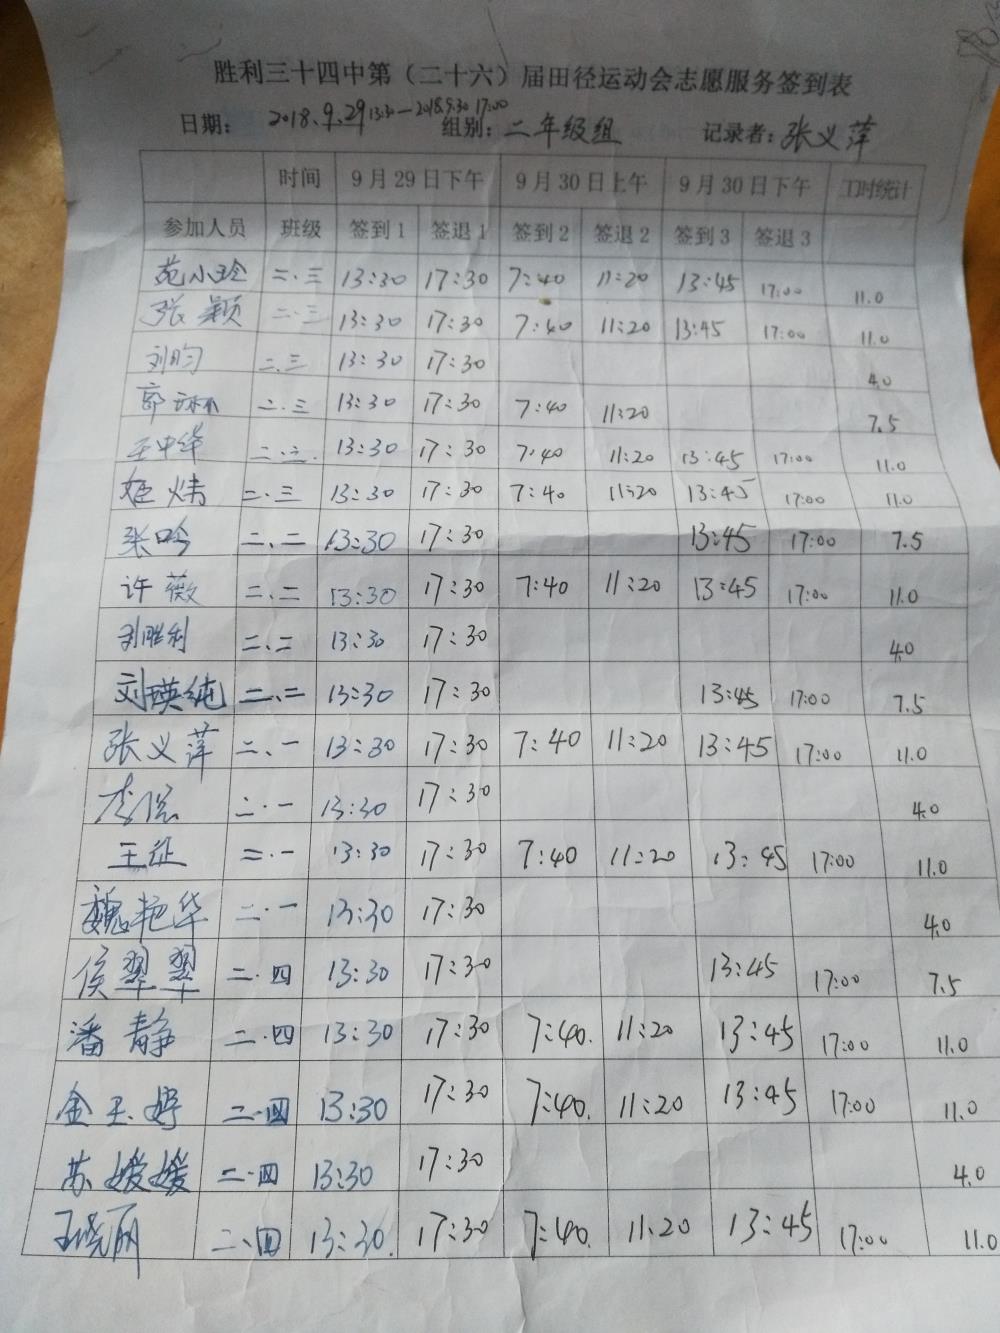 胜利三十四中第（二十六）届田径运动会志愿服务签到表
日期： 2018.9.29 13:30—2018.9.30 17:00 组别：二年级组 记录者：张义萍
时间 9月29日下午 9月30日上午 9月30日下午 工时统计
参加人员 班级 签到1 签退1 签到2 签退2 签到3 签退3
苑小玲 二.三 13:30 17:30 7:40 11:20 13:45 17:00 11.0
张颖 二.三 13:30 17:30 7:40 11:20 13:45 17:00 11.0
刘昀 二.三 13:30 17:30 4.0
郭琳 二.三 13:30 17:30 7:40 11:20 7.5
王中华 二.三. 13:30 17:30 7:40 11:20 13:45 17:00 11.0
姬炜 二.三 13:30 17:30 7:40 11:20 13:45 17:00 11.0
张吟 二、二 13:30 17:30 13:45 17:00 7.5
许薇 二、二 13:30 17:30 7:40 11:20 13:45 17:00 11.0
刘胜利 二、二 13:30 17:30 4.0
刘瑛纯 二、二 13:30 17:30 13:45 17:00 7.5
张义萍 二、一 13:30 17:30 7:40 11:20 13:45 17:00 11.0
二.一 13:30 17:30 4.0
王征 二.一 13:30 17:30 7:40 11:20 13:45 17:00 11.0
魏艳华 二.一 13:30 17:30 4.0
侯翠翠 二.四 13:30 17:30 13:45 17:00 7.5
潘静 二.四 13:30 17:30 7:40. 11:20 13:45 17:00 11.0
金玉婷 二.四 13:30 17:30 7:40. 11:20 13:45 17:00 11.0
苏媛媛 二.四 13:30 17:30 4.0
王晓丽 二、四 13:30. 17:30 7:40. 11:20 13:45 17:00 11.0